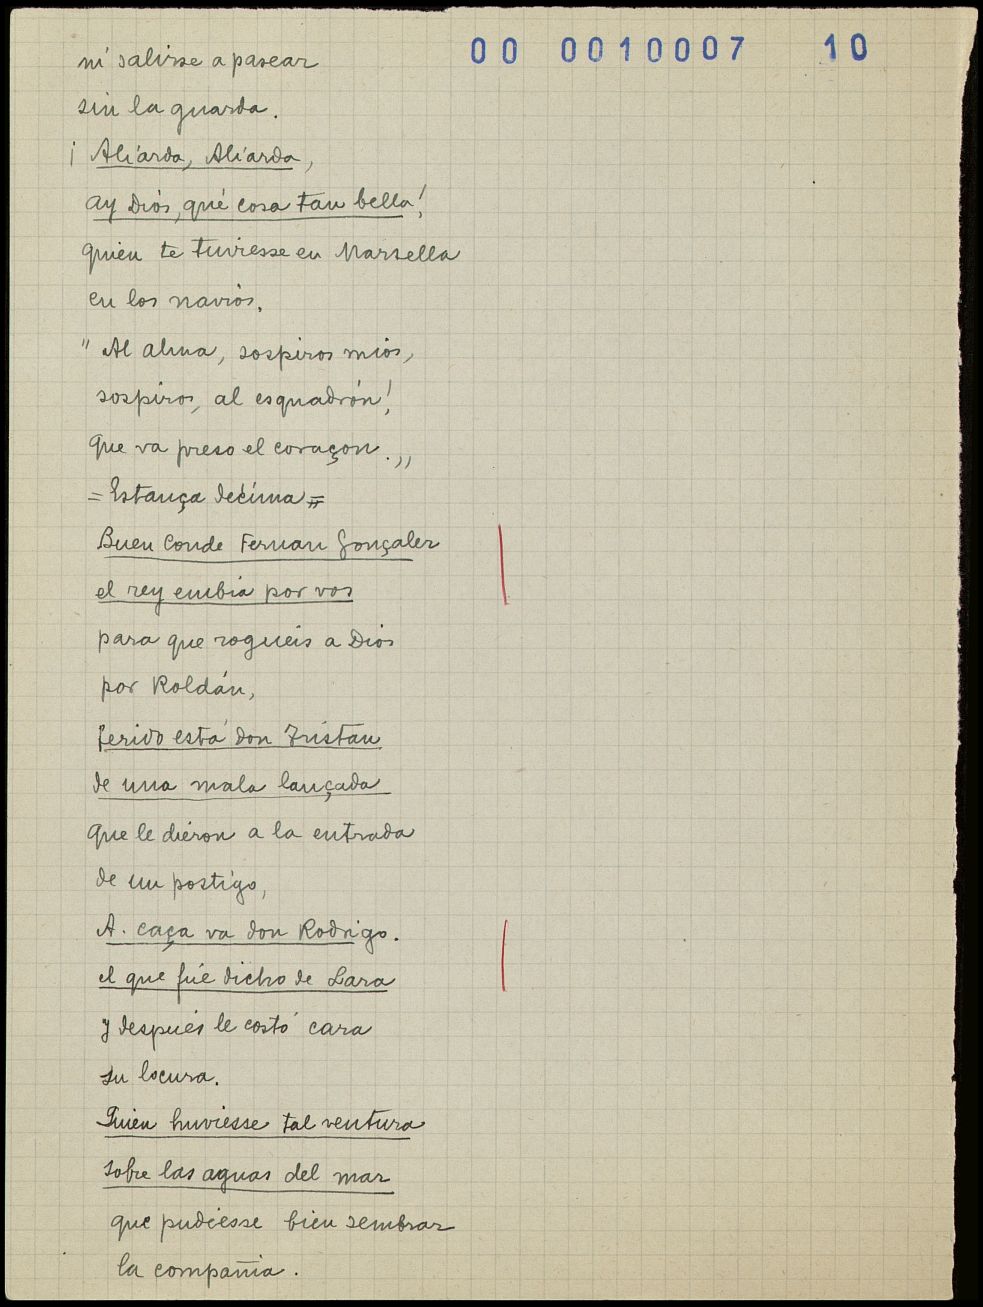 00 0010007 10
ni salirse a pasear
sin la guarda.
¡ Aliarda, Aliarda,
ay Dios, qué cosa tan bella!
quien te tuviesse en Marsella
en los navíos.
"Al alma, sospiros míos,
sospiros, al esquadrón!
que va preso el coraçon.,,
= Estança décima =
Buen Conde Fernan Gonçalez
el rey embia por vos
para que rogueis a Dios
por Roldán,
ferido está don Tristan
de una mala lançada
que le dieron a la entrada
de un postigo,
A. caça va don Rodrigo.
el que fué dicho de Lara
y después le costó cara
su locura.
Quien huviesse tal ventura
sobre las aguas del mar
que pudiesse bien sembrar
la compañia.